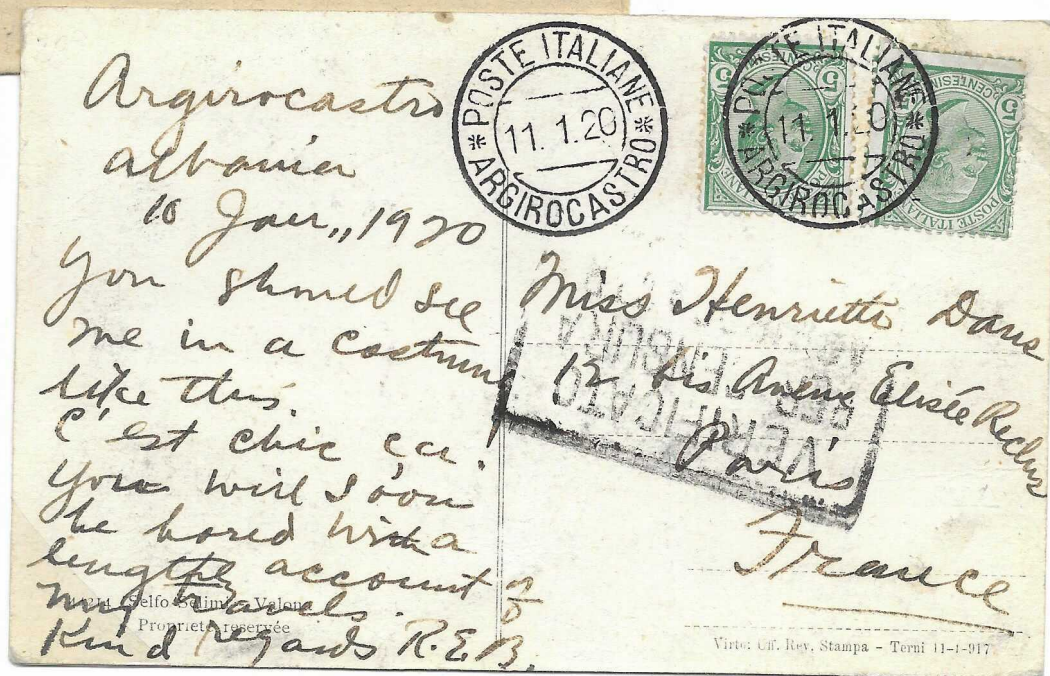 Argirocastro
Albania
10 Jan,, 1920
You should see
me in a costume
like this.
C'est chic ça!
You will soon
be bored with a
lengthy account
my travels.
Kind regards R.E.B.
Selfo Selimi - Valona
Proprieté reservée
POSTE ITALIANE
11. 1. 20
* ARGIROCASTRO *
POSTE ITALIANE
11. 1. 20
* ARGIROCASTRO *
5 CENTESIMI 5
POSTE ITALIANE
CENTESIMI 5
POSTE ITALIANE
Miss Henrietta Davis
12 bis Avenue Elisée Reclus
Paris
France
VERIFICATO
PER CENSURA
Virto: Uff. Rev. Stampa - Terni 11-1-917